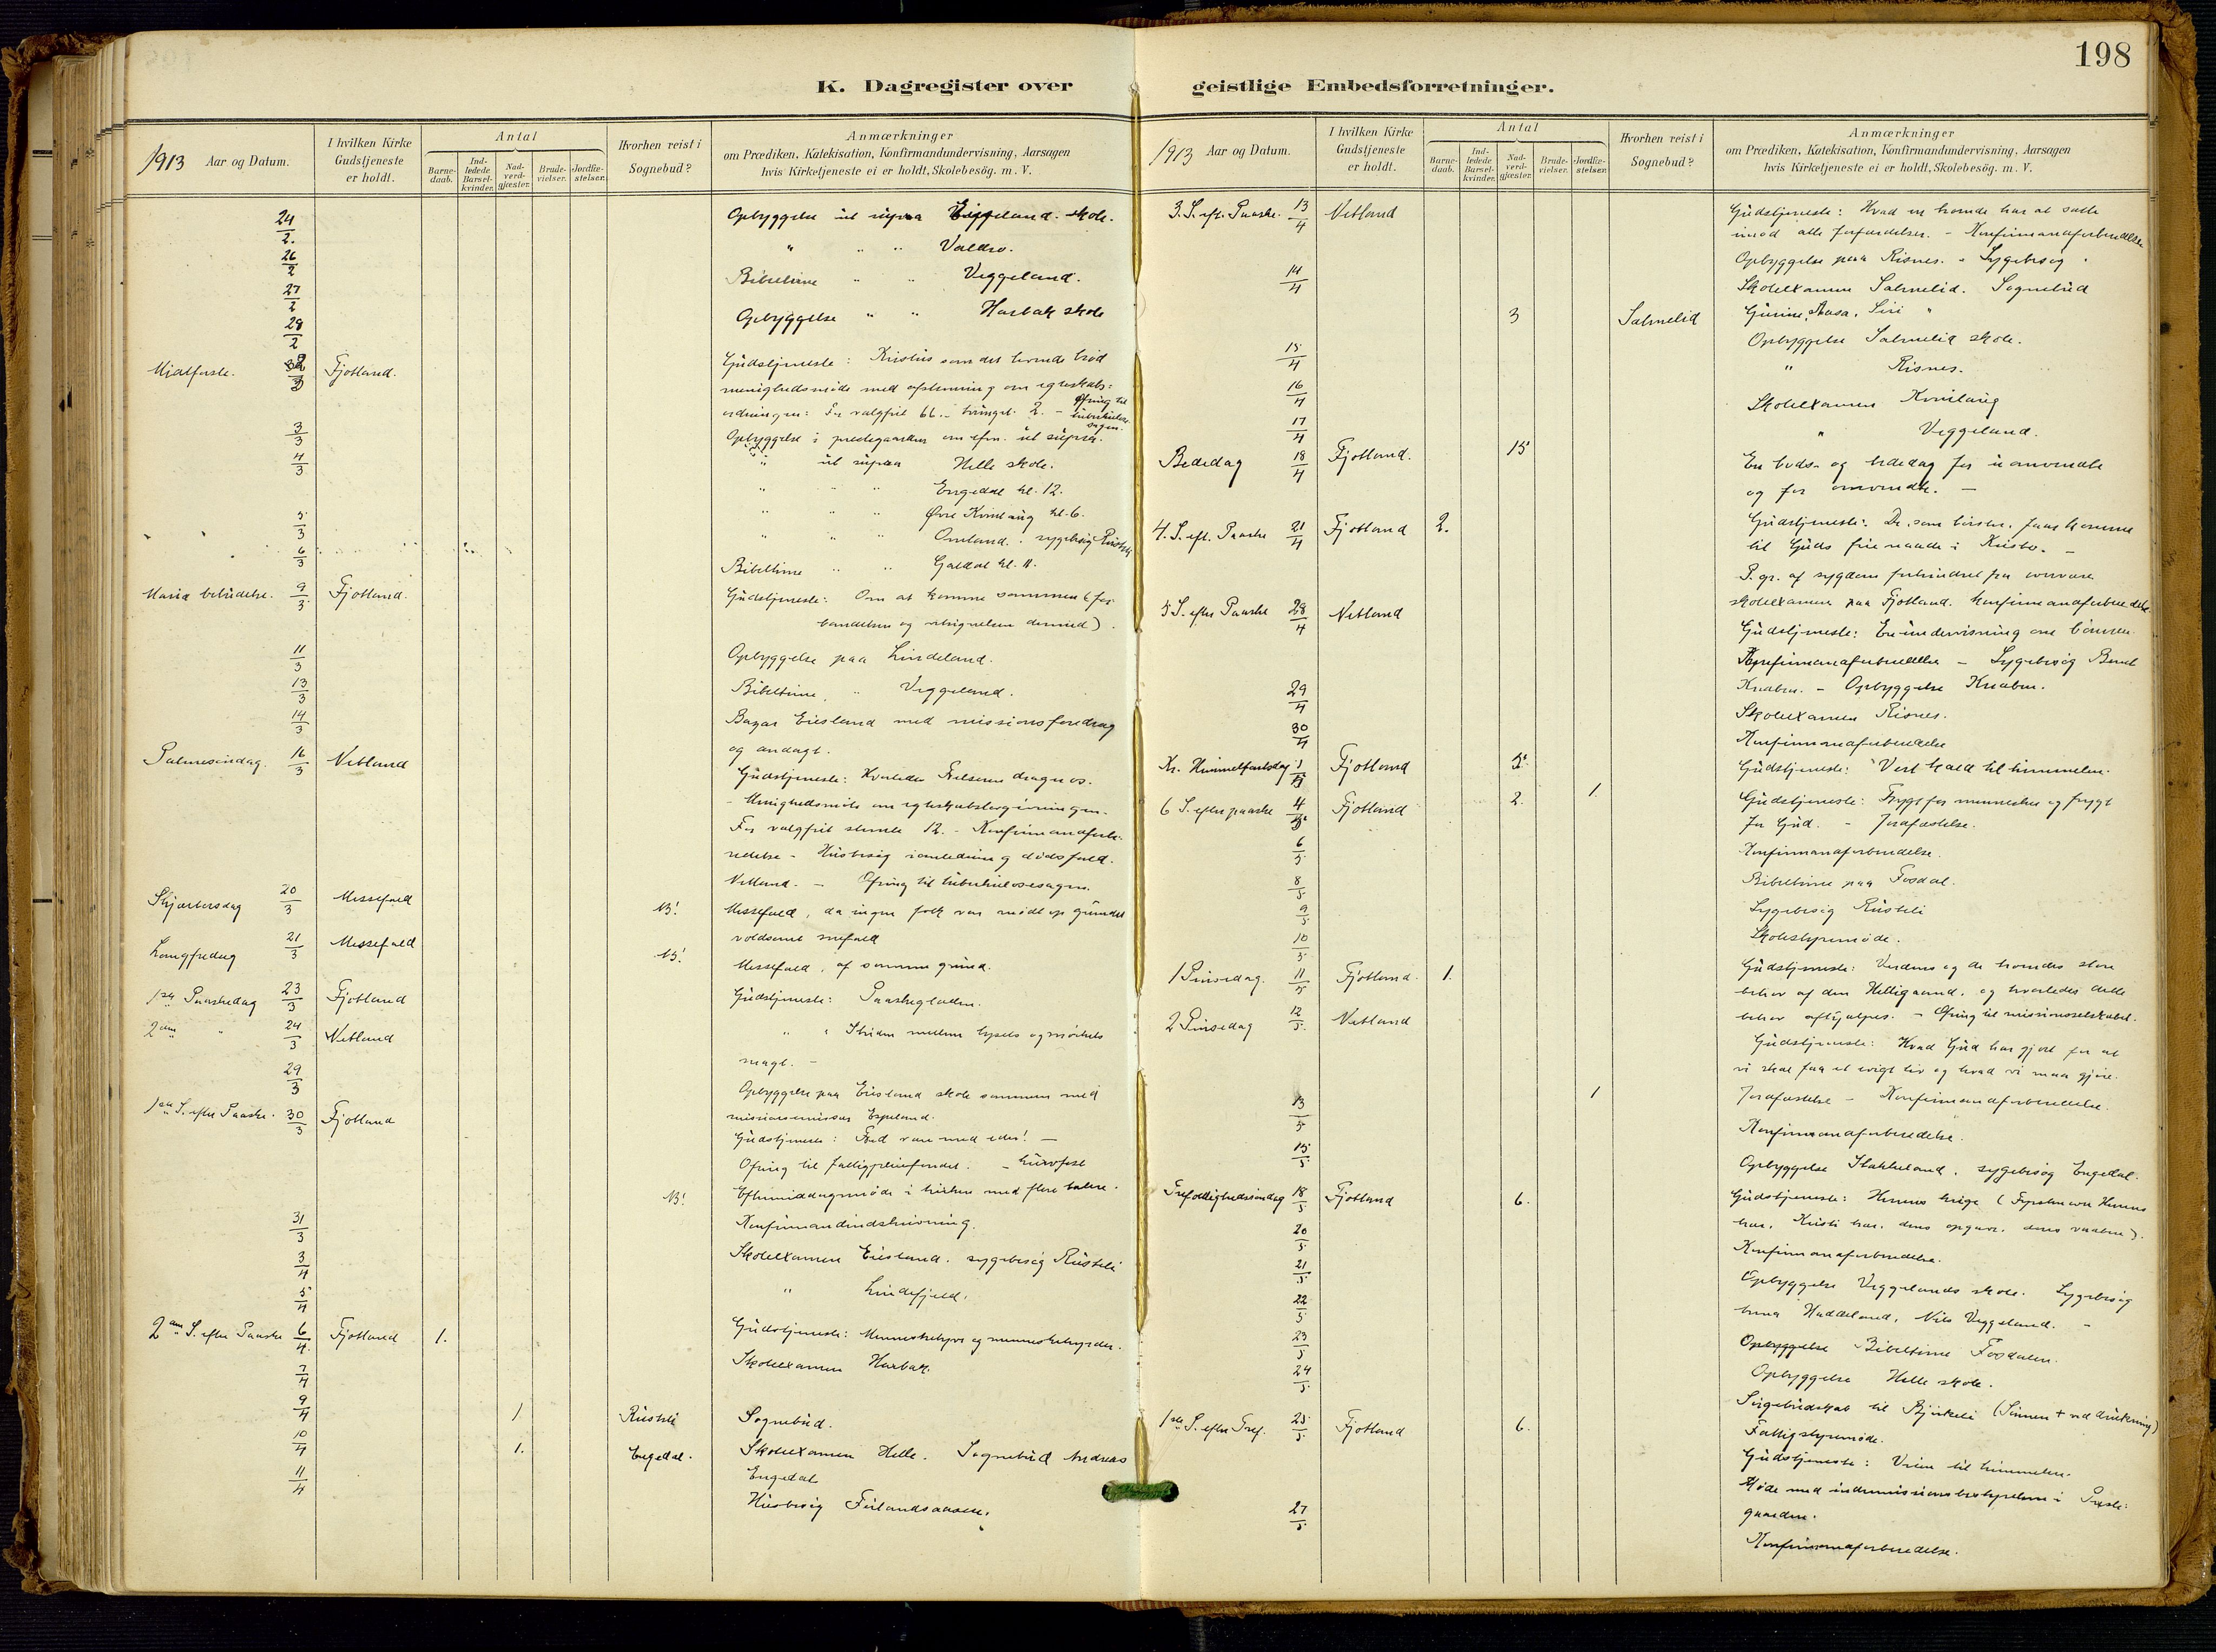 198
K. Dagregister over geistlige Embedsforretninger.
1913 Aar og Datum.
I hvilken Kirke Gudstjeneste er holdt.
Antal
Barnedaab.
Indledede Barselkvinder.
Nadverdgjæster.
Brudevielser.
Jordfæstelser.
Hvorhen reist i Sognebud?
Anmærkninger
om Prædiken, Katekisation, Konfirmandundervisning, Aarsagen
hvis Kirketjeneste ei er holdt, Skolebesög. m. V.
24/2. Opbyggelse ut supra skole.
26/2 " " " Valdro.
27/2 Bibeltime " " Veggeland.
28/2 Opbyggelse " " Harbak skole
Midtfaste. 2/3 Fjotland. Gudstjeneste: Kristus som det levende brød
menighedsmøde med afstemning om egteskabs:
ordningen: For valgfrit 66. – tvungt. 2. – Ofring til
tuberkulosesagen.
3/3 Opbyggelse i predegaarden om efm. ut supra.
4/3 " ut supra Helle skole.
" " " Engedal kl. 12.
5/3 " " " Øvre Kvinlaug kl. 6.
" " " Omland. sygebesøg Rüsteli
6/3 Bibeltime " " Galdal kl. 11.
Mariæ bebudelse. 9/3. Fjotland. Gudstjeneste: Om at komme sammen (for-
bandelsen og velsignelsen dermed).
11/3 Opbyggelse paa Lindeland.
13/3 Bibeltime " Veggeland.
14/3 Bazar Eiesland med missionsforedrag
og andagt.
Palmesøndag. 16/3 Netland Gudstjeneste: Hvorledes Frelseren drager os.
– Menighedsmøte om egteskabslovgivningen.
For valgfrit stemte 12. – Konfirmandforbe-
redelse – Husbesøg i anledning dødsfald.
Netland. – Ofring til tuberkulosesagen.
Skjærtorsdag 20/3 Messefald NB! Messefald, da ingen folk var mødt op grundet
voldsomt snefald
Langfredag 21/3 Messefald NB! Messefald, af samme grund.
1ste Paaskedag 23/3 Fjotland Gudstjeneste: Paaskeglæden.
2den " 24/3 Netland " " Striden mellem lysets og mørkets
magt. –
29/3 Opbyggelse paa Eiesland skole sammen med
missionsemissær Espeland.
1ste S. efter Paaske. 30/3 Fjotland Gudstjeneste: Fred være med eder! –
Ofring til fattigpleiefondet.
NB! Eftermiddagsmøde i kirken med flere talere.
31/3 Konfirmandindskrivning.
3/4 Skoleexamen Eiesland. sygebesøg Rüsteli
5/4 " Lindefjeld.
2den S. efter Paaske 6/4. Fjotland 1. Gudstjeneste: Menneskehyrde og menneskehyrder.
7/4 Skoleexamen Harbak.
9/4 1. Rüsteli Sognebud.
10/4 1. Engedal. Skoleexamen Helle. Sognebud Andreas
Engedal
11/4 Husbesøg Feilandsaasen.
1913 Aar og Datum.
I hvilken Kirke Gudstjeneste er holdt.
Antal
Barnedaab.
Indledede Barselkvinder.
Nadverdgjæster.
Brudevielser.
Jordfæstelser.
Hvorhen reist i Sognebud?
Anmærkninger
om Prædiken, Katekisation, Konfirmandundervisning, Aarsagen
hvis Kirketjeneste ei er holdt, Skolebesög. m. V.
3. S. eft. Paaske. 13/4 Netland Gudstjeneste: Hvad en kristen har at sætte
imod alle forfærdelser. – Konfirmandforberedelse
Opbyggelse paa Risnes. – Sygebesøg "
14/4 Skoleexamen Salmelid. Sognebud
3 Salmelid Gurine, Aasa, Siri "
Opbyggelse Salmelid skole.
15/4 " Risnes.
16/4 Skoleexamen Kvinlaug
17/4 " Veggeland.
Bededag 18/4 Fjotland. 15 En bods- og bededag for uomvendte
og for omvendte. –
4. S. eft. Paaske 21/4 Fjotland 2. Gudstjeneste: De, som tørster, faar komme
til Guds frie naade i Kristo. –
P. gr. af sygdom forhindret fra overvære
skoleexamen paa Fjotland. Konfirmandforberedelse.
5 S. efter Paaske 28/4 Netland Gudstjeneste: En undervisning om bønnen.
Konfirmandforberedelse – Sygebesøg Berret
Knaben. – Opbyggelse Knaben.
29/4 Skoleexamen Risnes.
30/4 Konfirmandforberedelse
Kr. Himmelfartsdag 1/5 Fjotland 5. Gudstjeneste: Vort kald til himmelen.
6 S. efter paaske 4/5 Fjotland 2. 1 Gudstjeneste: Frygt for mennesker og frygt
for Gud. – Jordfæstelse.
6/5 Konfirmandforberedelse.
8/5 Bibeltime paa Fosdal.
9/5 Sygebesøg Rüsteli
10/5 Skolestyremøde.
1 Pinsedag. 11/5 Fjotland. 1. Gudstjeneste: Verdens og de troendes store
behov af den Helligaand, og hvorledes dette
behov afhjælpes. – Ofring til missionsselskabet.
2 Pinsedag 12/5. Netland Gudstjeneste: Hvad Gud har gjort for at
vi skal faa et evigt liv og hvad vi maa gjøre.
1 Jordfæstelse – Konfirmandforberedelse.
13/5 Konfirmandforberedelse.
15/5. Opbyggelse Stakkeland, sygebesøg Engedal.
Trefoldighedssøndag 18/5 Fjotland 6. Gudstjeneste: Herrens krige
hær, Kristi hær, dens opgave, dens vaaben).
20/5 Konfirmandforberedelse.
21/5 Opbyggelse Veggelands skole. Sygebesøg
22/5 Haddeland, Nils Veggeland. –
23/5 Opbyggelse Bibeltime Fosdalen.
24/5 Opbyggelse Helle skole.
Sørgebudskab til Bjørkeli (Sønnen + ved drukning)
Fattigstyremøde.
1ste S. efter Tref. 25/5 Fjotland 6. Gudstjeneste: Veien til himmelen.
Møde med indremissionsbestyrelsen i Præste-
gaarden.
27/5. Konfirmandforberedelse.